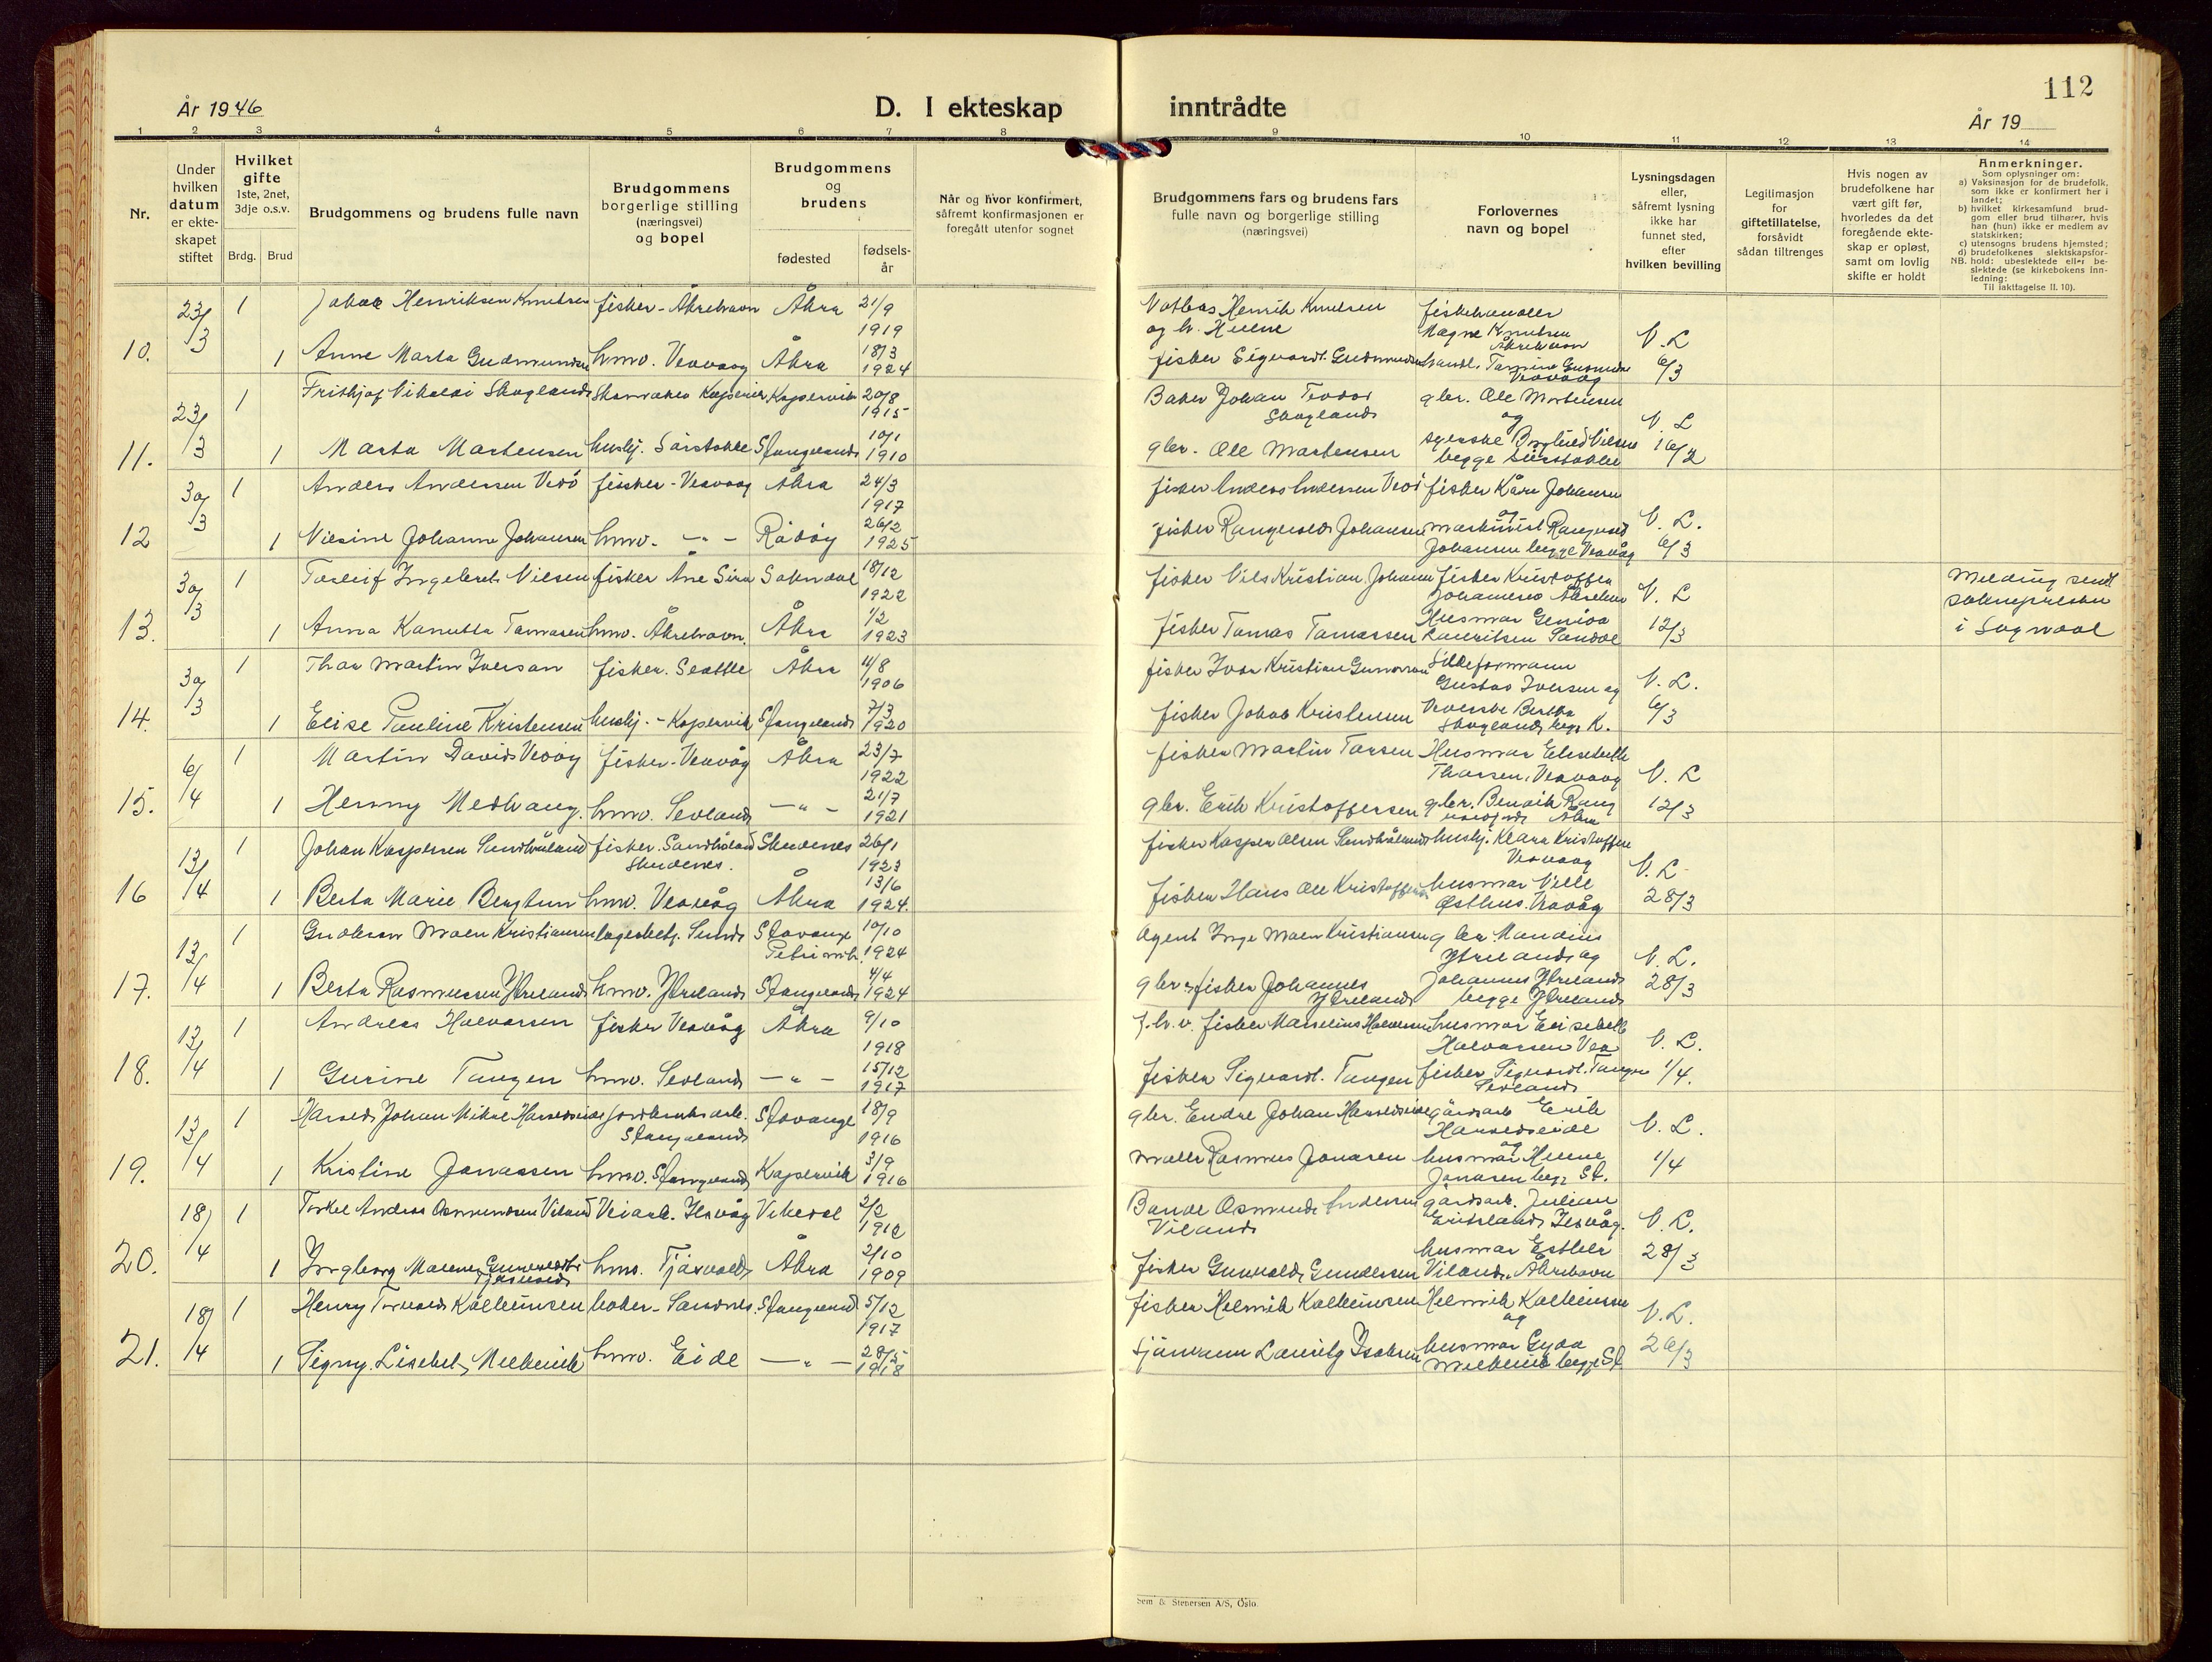 112
År 1946
D. I ekteskap inntrådte
År 19
1 2 3 4 5 6 7 8 9 10 11 12 13 14
Nr.
Under hvilken datum er ekteskapet stiftet
Hvilket gifte 1ste, 2net, 3dje o.s.v.
Brdg. Brud
Brudgommens og brudens fulle navn
Brudgommens borgerlige stilling (næringsvei) og bopel
Brudgommens og brudens
fødested
fødselsår
Når og hvor konfirmert, såfremt konfirmasjonen er foregått utenfor sognet
Brudgommens fars og brudens fars fulle navn og borgerlige stilling (næringsvei)
Forlovernes navn og bopel
Lysningsdagen eller, såfremt lysning ikke har funnet sted, efter hvilken bevilling
Legitimasjon for giftetillatelse, forsåvidt sådan tiltrenges
Hvis nogen av brudefolkene har vært gift før, hvorledes da det foregående ekteskap er opløst, samt om lovlig skifte er holdt
Anmerkninger.
Som oplysninger om:
a) Vaksinasjon for de brudefolk, som ikke er konfirmert her i landet;
b) hvilket kirkesamfund brudgom eller brud tilhører, hvis han (hun) ikke er medlem av statskirken;
c) utensogns brudens hjemsted;
d) brudefolkenes slektskapsforhold: ubeslektede eller beslektede (se kirkebokens Innledning:
NB. Til iakttagelse II. 10).
10. 23/3 1 Henriksen Knutsen fisker - Åkrehavn Åkra 21/9 1919
og h. Helene Magne Knutsen Åkrehavn V. L
1 Anne Marta Gudmundsen hmv. Veavaag Åkra 18/3 1924 fisker Sigvardt. Gudmundsen Veavaag 6/3
11. 23/3 1 Frithjof Nikolai Skogland Kopervik 20/8 1915 Baker Johan Teodor Skogland gbr. Ole Mortensen og V. L
1 Marta Mortensen hushj. Sørstokke Stangeland 10/1 1910 gbr. Ole Mortensen begge Sørstokke 16/2
12 30/3 1 Anders Andersen Vedø fisker - Veavaag Åkra 24/3 1917 fisker Anders Andersen Vedø fisker Kåre Johansen og V. L.
1 Nilsine Johanne Johansen hmv. - " - Rådøy 26/2 1925 fisker Rangvald Johansen Johansen begge Veavåg 6/3
13. 30/3 1 Torleif Ingebret Nilsen fisker Åne Sira Sokndal 18/12 1922 fisker Nils Kristian Johansen fisker Kristoffer V. L Melding sendt sokneprester i Sogndal
1 Anna Kanutta Tomasen hmv. Åkrehavn. Åkra 1/2 1923 fisker Tomas Tomassen Husmor 12/3
14. 30/3 1 Thor Martin Iversen fisker. Seattle Åkra 11/8 1906 fisker Ivar Kristian Sildeformann Gustav Iversen og V. L.
1 Elise Pauline Kristensen hushj. - Kopervik Stangeland 7/3 1920 fisker Jakob Kristensen Skogland begge K. 6/3
15. 6/4 1 Martin David Vedøy fisker - Veavåg Åkra 23/7 1922 fisker Martin Torsen Husmor Elisebeth Thorsen, Veavaag V. L
1 Henny Medhaug. hmv. Sevland - " - 21/7 1921 gbr. Erik Kristoffersen gbr. Åkra 12/3
16 13/4 1 Johan Kaspersen Sandhåland fisker. Sandhåland Skudenes. Skudenes 26/1 1923 fisker Kasper Olsen Sandhåland hushj. Klara Kristoffersen Veavaag V. L
1 Berta Marie Bergtun hmv. Veavåg Åkra 13/6 1924. fisker Hans Ole Kristoffersen husmor Østhus. Veavåg 28/3
17. 13/4 1 Moen Kristiansen lagerbetj. Sund Stavanger Petri 10/10 1924 Agent Inge Moen Kristiansen gbr. Ytreland og V. L.
1 Berta Rasmussen Ytreland hmv. Ytreland Stangeland 4/4 1924 gbr. & fisker Johannes Ytreland Johannes Ytreland begge Ytreland 28/3
18. 13/4 1 Andreas Halvorsen fisker Veavåg Åkra 9/10 1918 fisker Marselius Halvorsen husmor Elisebeth Halvorsen Vea V. L.
1 Gurine Tangen hmv. Sevland - " - 15/12 1917 fisker Sigvardt. Tangen fisker Sigvardt. Tangen Sevland 1/4.
19. 13/4 1 Harald Johan Mikal Haraldseide jordbruksarb. Stangeland Stavanger 18/9 1916 gbr. Endre Johan Haraldseide gårdsarb Erik Haraldseide og V. L.
1 Kristine Jonassen hmv. Stangeland Kopervik 3/9 1916 Rasmus Jonasen husmor Helene Jonasen begge St. 1/4
20. 18/4 1 Torkel Andreas Osmundsen Viland Veiarb. Vikedal 2/2 1912 Bonde Osmund Andersen Viland gårdsarb. Julian V. L.
1 Ingborg Malene Gunvaldti Tjøsvold hmv. Tjøsvold Åkra 2/10 1909 fisker Gunvald Gundersen husmor Esther Viland. Åkrehavn 28/3
21. 18/4 1 Henry Torvald Kolbeinsen baker - Sandnes. Stangeland 5/12 1917 fisker Helmik Kolbeinsen Helmik Kolbeinsen og V. L.
1 Signy. Lisebet, Melkevik hmv. Eide - " - 28/5 1918 sjømann Lauritz Isaksen husmor Gyda Melkevik begge St 26/3
Sem & Stenersen A/S, Oslo.